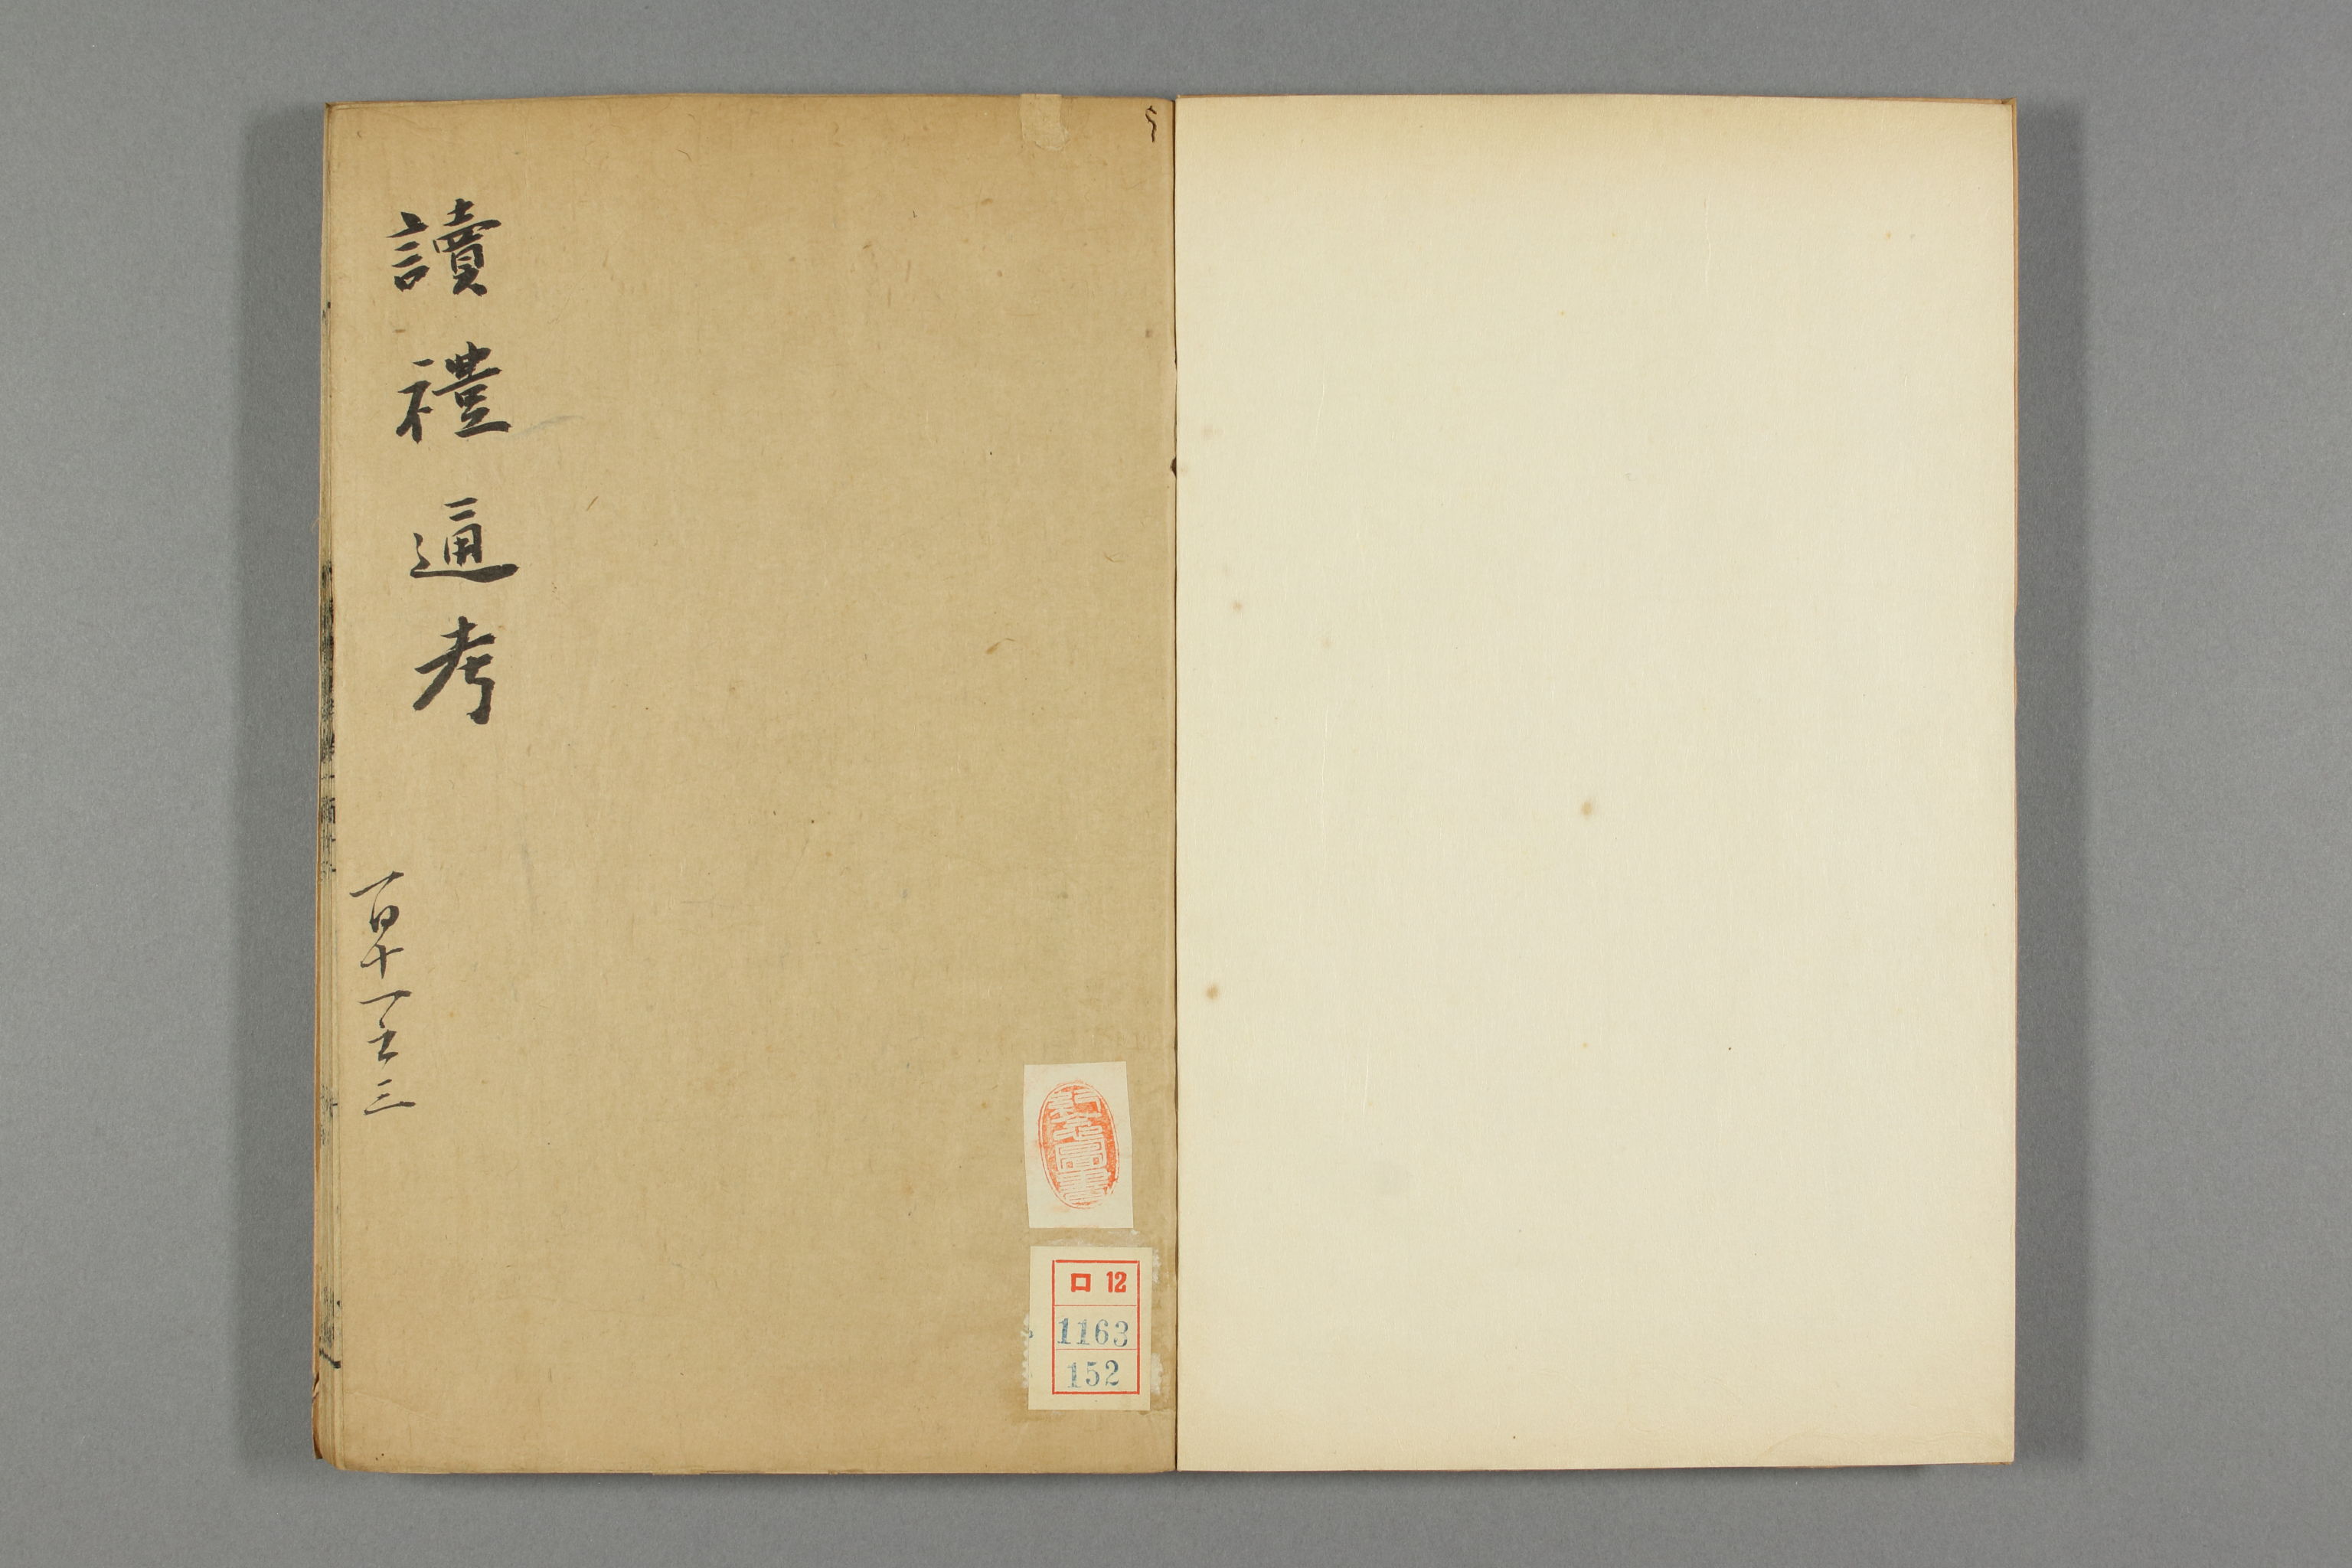 讀禮通考
百十一至三
ロ 12
1163
152